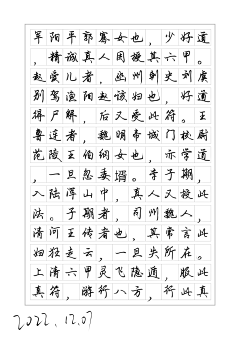 军阳平郭骞女也，少好道
，精诚真人因授其六甲。
赵爱儿者，幽州刺史刘虞
别驾渔阳赵该妇也，好道
得尸解，后又受此符。王
鲁连者，魏明帝城门校尉
范陵王伯纲女也，亦学道
，一旦忽委壻。李子期，
入陆浑山中，真人又授此
法。子期者，司州魏人，
清河王传者也，其常言此
妇狂走云，一旦失所在。
上清六甲灵飞隐道，服此
真符，游行八方，行此真
2022.12.07